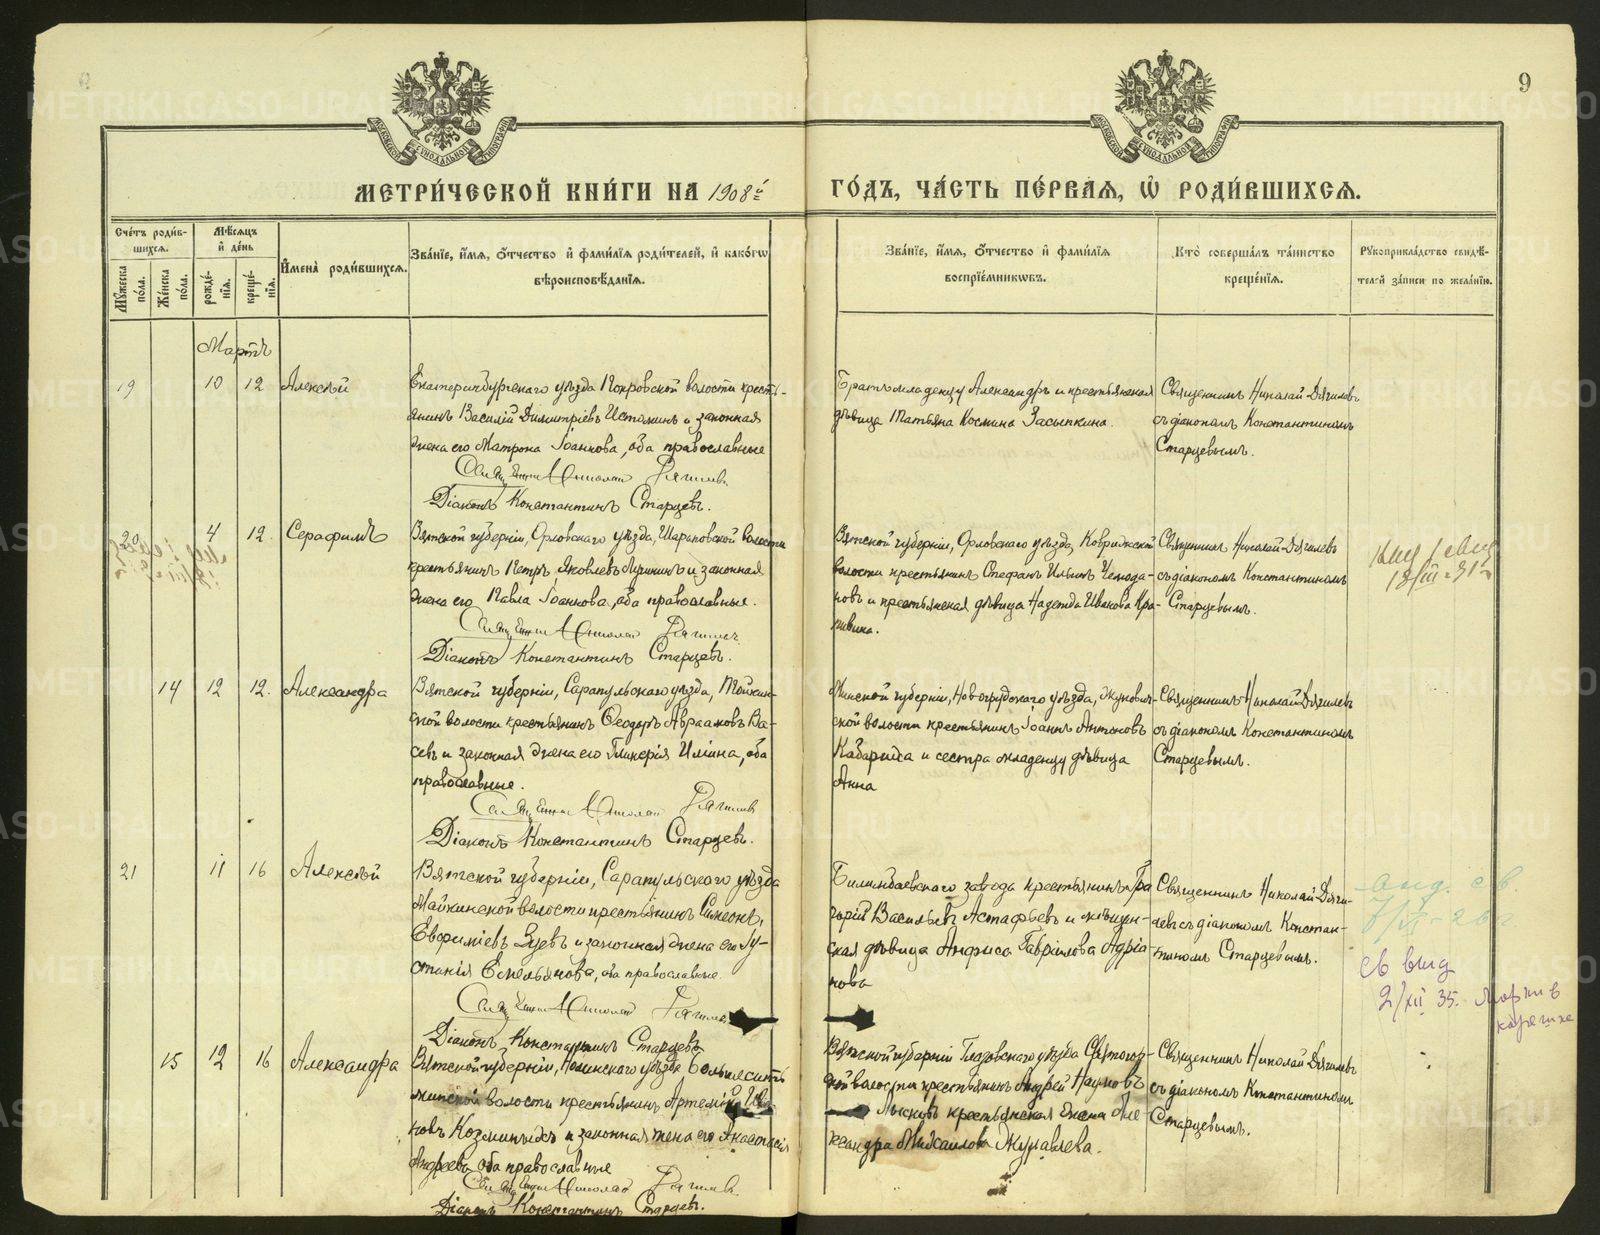 9
МЕТРИ́ЧЕСКОЙ КНИ́ГИ НА 1908й
ГО́ДЪ, ЧА́СТЬ ПЕ́РВАЯ, Ѽ РОДИ́ВШИХСЯ.
Сче́тъ роди́в-
шихся.
Му́жеска по́ла.
Же́нска по́ла.
Мѣ́сяцъ
и де́нь
рожде́-
нїя.
креще́-
нїя.
Имена̀ роди́вшихся.
Зва́нїе, и́мя, о́тчество и фами́лїя роди́телей, и како́гѡ
вѣроисповѣ́данїя.
Зва́нїе, и́мя, о́тчество и фами́лїя
воспрїе́мникѡвъ.
Кто̀ соверша́лъ та́инство
креще́нїя.
Рꙋкоприкла́дство свидѣ́-
телей за́писи по жела́нїю.
Мартъ
19 10 12 Алексѣй
Екатеринбургскаго уѣзда Покровской волости кресть-
янинъ Василій Димитріевъ Истоминъ и законная
жена его Матрона Іоаннова, оба православные
Священникъ Николай Дягилевъ
Діаконъ Константинъ Старцевъ.
Братъ младенцу Александръ и крестьянская
дѣвица Татьяна Космина Засыпкина.
Священникъ Николай Дягилевъ
съ діакономъ Константиномъ
Старцевымъ.
20 4 12 Серафимъ
Вятской губерніи, Орловскаго уѣзда, Шараповской волости
крестьянинъ Петръ Яковлевъ Лушинъ и законная
жена его Павла Іоаннова, оба православные.
Священникъ Николай Дягилевъ
Діаконъ Константинъ Старцевъ.
Вятской губерніи, Орловскаго уѣзда, Ковринской
волости крестьянинъ Стефанъ Ильинъ Чемода-
новъ и крестьянская дѣвица Надежда Иванова
Священникъ Николай Дягилевъ
съ діакономъ Константиномъ
Старцевымъ.
14 12 12. Александра
Вятской губерніи, Сарапульскаго уѣзда,
ской волости крестьянинъ Ѳеодоръ Авраамовъ Ва-
севъ и законная жена его Гликерія Илiина, оба
православные.
Священникъ Николай Дягилевъ
Діаконъ Константинъ Старцевъ.
Минской губерніи, Новогрудскаго уѣзда,
ской волости крестьянинъ Іоаннъ Антоновъ
и сестра младенцу дѣвица
Анна
Священникъ Николай Дягилевъ
съ діакономъ Константиномъ
Старцевымъ.
21 11 16 Алексѣй
Вятской губерніи, Сарапульскаго уѣзда
волости крестьянинъ Симеонъ
Евфиміевъ Зуевъ и законная жена его Іу-
стинія Емельянова, оба православные.
Священникъ Николай Дягилевъ
Діаконъ Константинъ Старцевъ
Билимбаевскаго завода крестьянинъ Гри-
горій Васильевъ Астафьевъ и мѣщан-
ская дѣвица Анфиса Гавріилова Адріа-
нова
Священникъ Николай Дяги-
левъ съ діакономъ Констан-
тиномъ Старцевымъ.
св выд
2/XII 35.
15 12 16 Александра
Вятской губерніи, Нолинскаго уѣзда
волости крестьянинъ Артемій
новъ Козминыхъ и законная жена его Анастасія
Андреева, оба православные
Священникъ Николай Дягилевъ.
Діаконъ Константинъ Старцевъ.
Вятской губерніи Глазовскаго уѣзда Святогор-
ской волости крестьянинъ Андрей Наумовъ
Лысковъ крестьянская жена Але-
ксандра Михаилова Журавлева.
Священникъ Николай Дягилевъ
съ діакономъ Константиномъ
Старцевымъ.
METRIKI.GASO-URAL.RU